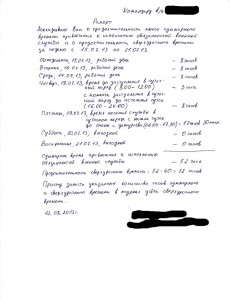 Командиру в/ч
Рапорт
Докладываю Вам о продолжительности моего суммарного
времени привлечения к исполнению обязанностей военной
службы и о продолжительности сверхурочного времени
за неделю с 15.02.13 по 21.02.13.
Понедельник, 15.02.13, рабочий день — 8 часов
Вторник, 16.02.13, рабочий день — 8 часов
Среда, 17.02.13, рабочий день — 8 часов
Четверг, 18.02.13, время до заступления в
наряд (8.00 - 12.00) — 3 часа
с момента заступления в
наряд до истечения суток
(16.00 - 24.00) — 8 часов
Пятница, 19.02.13, время несения службы в
суточном наряде с начала суток
до смены с дежурства (00.00 - 17.30) - 17 часов 30 мин.
Суббота, 20.02.13, выходной — 0 часов
Воскресенье, 21.02.13, выходной — 0 часов
Суммарное время привлечения к исполнению
обязанностей военной службы — 52 часа
Продолжительность сверхурочного времени: 52-40 = 12 часов
Прошу занести указанное количество часов суммарного
и сверхурочного времени в журнал учёта сверхурочного
времени.
22.02.2013г.